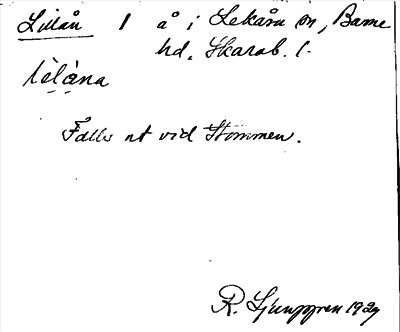 Lillån 1 å i Lekåsa sn, Barne
hd, Skarab. l.
lìlå̀na
Falls ut vid Stommen.
R. Ljunggren 1929